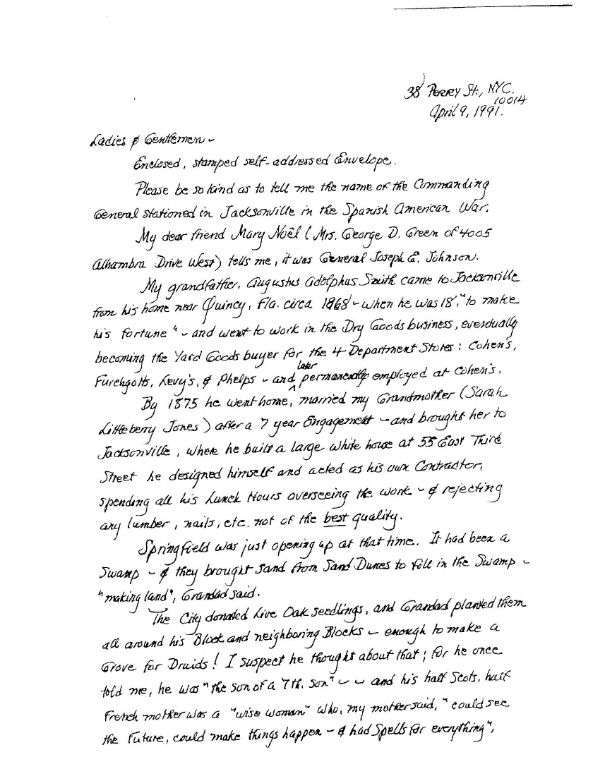 38 Perry St., NYC.
10014
April 9, 1991.
Ladies & Gentlemen -
Enclosed, stamped self-addressed Envelope.
Please be so kind as to tell me the name of the Commanding
General stationed in Jacksonville in the Spanish American War.
My dear friend Mary Noël (Mrs. George D. Green of 4005
Alhambra Drive West) tells me, it was General Joseph E. Johnson.
My grandfather, Augustus Adolphus Smith came to Jacksonville
from his home near Quincy, Fla. circa 1868 - when he was 18, "to make
his fortune" - and went to work in the Dry Goods business, eventually
becoming the Yard Goods buyer for the 4 Department Stores: Cohen's,
Furchgotts, Levy's, & Phelps - and later permanently employed at Cohen's.
By 1875 he went home, married my Grandmother (Sarah
Littleberry Jones) after a 7 year Engagement - and brought her to
Jacksonville, where he built a large white house at 55 East Third
Street he designed himself and acted as his own Contractor,
spending all his Lunch Hours overseeing the work - & rejecting
any lumber, nails, etc. not of the best quality.
Springfield was just opening up at that time. It had been a
Swamp - & they brought sand from Sand Dunes to fill in the Swamp -
"making land", Grandad said.
The City donated Live Oak seedlings, and Grandad planted them
all around his Block and neighboring Blocks - enough to make a
Grove for Druids! I suspect he thought about that; for he once
told me, he was "the son of a 7th. son" - - and his half Scots, half
French mother was a "wise woman" who, my mother said, "could see
the Future, could make things happen - & had Spells for everything",